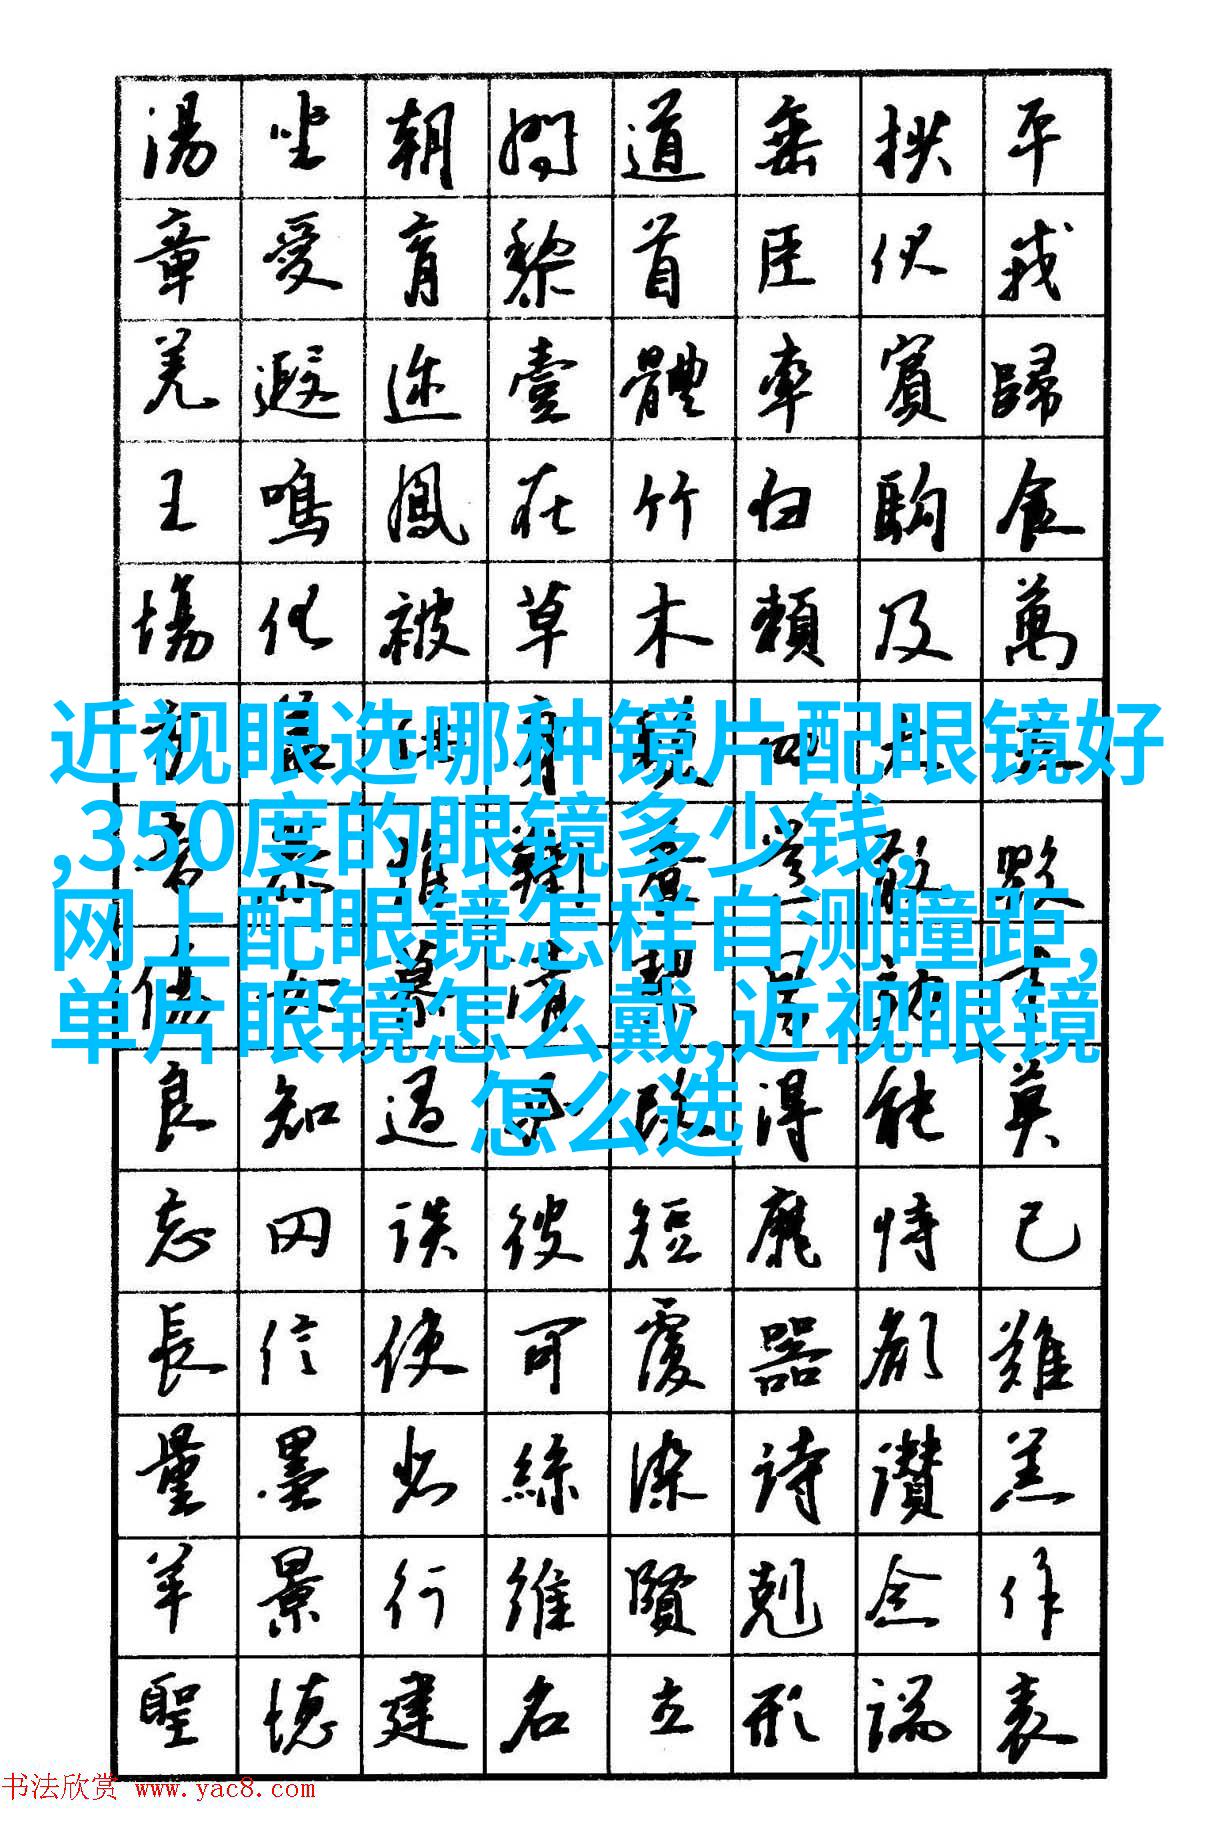 湯坐朝問道垂拱平
章愛育黎首臣伏戎
羌遐迩壹體率賓歸
王鳴鳳在竹白駒食
場化被草木賴及萬
近视眼选哪种镜片配眼镜好
,350度的眼镜多少钱,
网上配眼镜怎样自测瞳距,
单片眼镜怎么戴,近视眼镜
怎么选
良知過改得能莫
忘罔談彼短靡恃己
長信使可覆器欲難
量墨悲絲染詩讚羔
羊景行維賢剋念作
聖德建名立形端表
书法欣赏 www.yac8.com